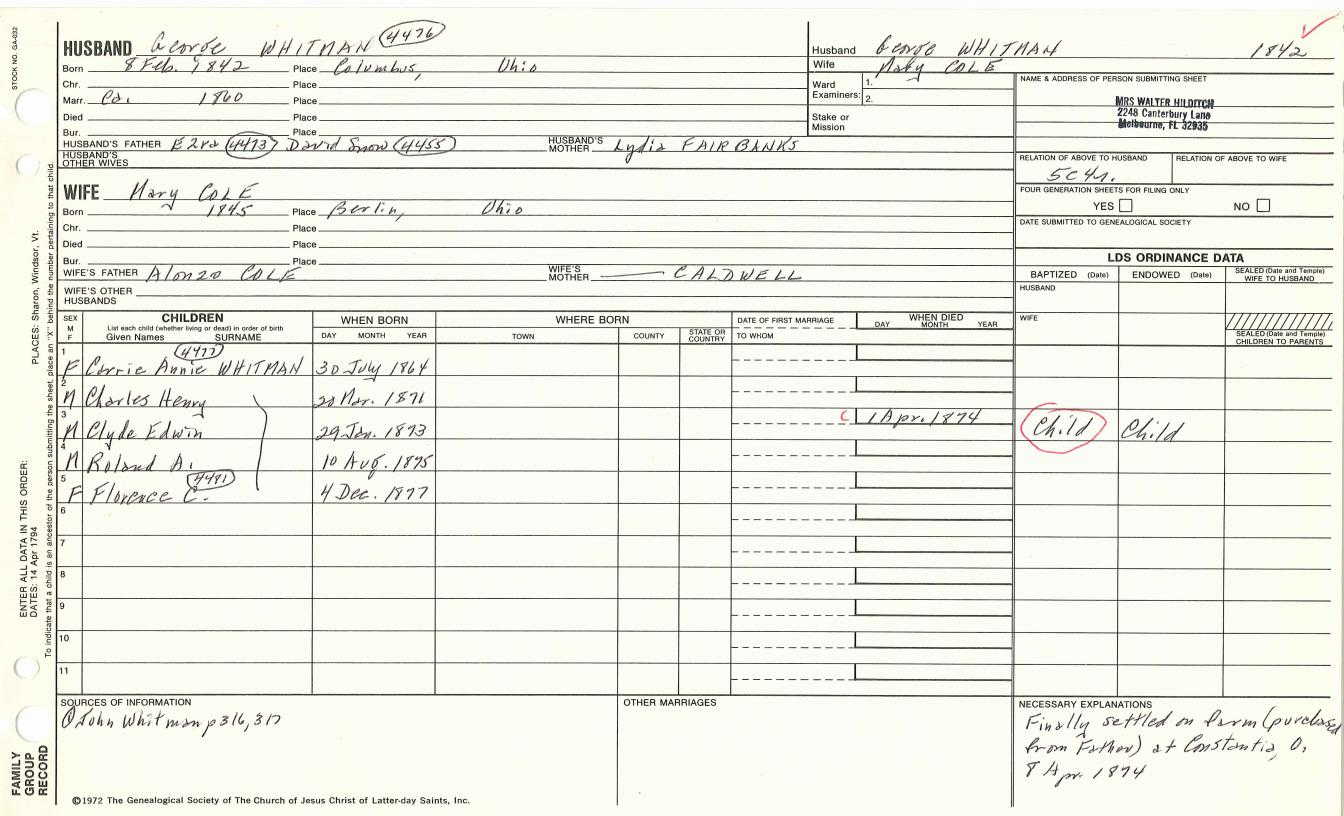 STOCK NO. GA-032
HUSBAND George WHITMAN 4476
Born 8 Feb. 1842 Place Columbus, Ohio
Chr. Place
Marr. Ca. 1860 Place
Died Place
Bur. Place
HUSBAND'S FATHER Ezra 4473 David Snow 4455 HUSBAND'S MOTHER Lydia FAIRBANKS
HUSBAND'S OTHER WIVES
WIFE Mary COLE
Born 1845 Place Berlin, Ohio
Chr. Place
Died Place
Bur. Place
WIFE'S FATHER Alonzo COLE WIFE'S MOTHER CALDWELL
WIFE'S OTHER HUSBANDS
Husband George WHITMAN 1842
Wife Mary COLE
Ward Examiners: 1.
2.
Stake or Mission
NAME & ADDRESS OF PERSON SUBMITTING SHEET
MRS WALTER HILDITCH
2248 Canterbury Lane
Melbourne, FL 32935
RELATION OF ABOVE TO HUSBAND RELATION OF ABOVE TO WIFE
5C4r.
FOUR GENERATION SHEETS FOR FILING ONLY
YES NO
DATE SUBMITTED TO GENEALOGICAL SOCIETY
LDS ORDINANCE DATA
BAPTIZED (Date) ENDOWED (Date) SEALED (Date and Temple) WIFE TO HUSBAND
HUSBAND
WIFE
SEALED (Date and Temple) CHILDREN TO PARENTS
SEX M F
CHILDREN
List each child (whether living or dead) in order of birth
Given Names SURNAME
WHEN BORN
DAY MONTH YEAR
WHERE BORN
TOWN COUNTY STATE OR COUNTRY
DATE OF FIRST MARRIAGE
TO WHOM
WHEN DIED
DAY MONTH YEAR
4477
1 F Corrie Annie WHITMAN 30 July 1864
2 M Charles Henry 20 Mar. 1871
3 M Clyde Edwin 29 Jan. 1873 C 1 Apr. 1874 Child Child
4 M Roland A. 10 Aug. 1875
4481
5 F Florence C. 4 Dec. 1877
6
7
8
9
10
11
SOURCES OF INFORMATION
John Whitman p 316, 317
OTHER MARRIAGES
NECESSARY EXPLANATIONS
Finally settled on farm (purchased
from Father) at Constantia, O,
8 Apr. 1874
©1972 The Genealogical Society of The Church of Jesus Christ of Latter-day Saints, Inc.
FAMILY
GROUP
RECORD
ENTER ALL DATA IN THIS ORDER:
DATES: 14 Apr 1794
PLACES: Sharon, Windsor, Vt.
To indicate that a child is an ancestor of the person submitting the sheet, place an "X" behind the number pertaining to that child.